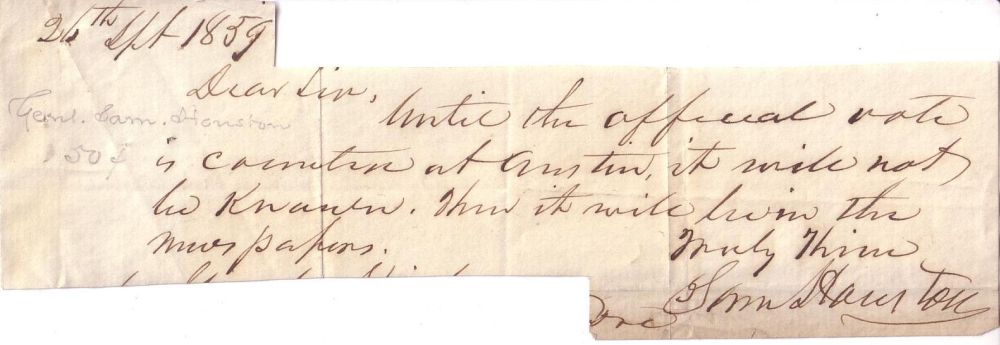 26th Spt 1859
Dear Sir,
Genl. Sam. Houston
50¢
Until the official vote
is counted at Austin, it will not
be Known. Then it will be in the
News papers.
Truly Thine
Sam Houston